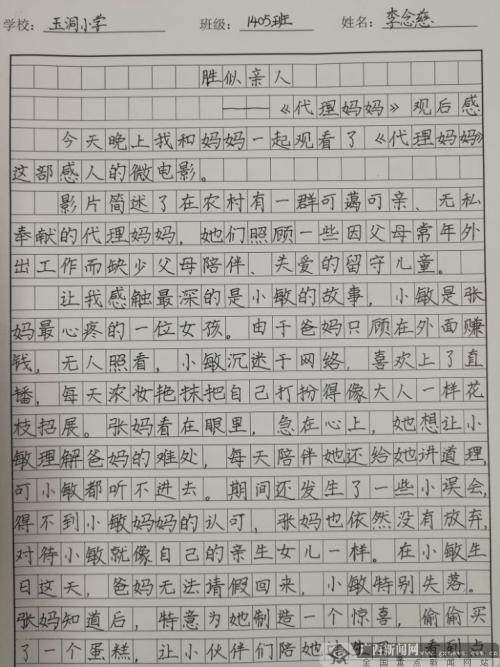 学校：玉洞小学 班级：1405班 姓名：李念慈
胜似亲人
——《代理妈妈》观后感
今天晚上我和妈妈一起观看了《代理妈妈》
这部感人的微电影。
影片简述了在农村有一群可蔼可亲、无私
奉献的代理妈妈，她们照顾一些因父母常年外
出工作而缺少父母陪伴、关爱的留守儿童。
让我感触最深的是小敏的故事，小敏是张
妈最心疼的一位女孩。由于爸妈只顾在外面赚
钱，无人照看，小敏沉迷于网络，喜欢上了直
播，每天浓妆艳抹把自己打扮得像大人一样花
枝招展。张妈看在眼里，急在心上，她想让小
敏理解爸妈的难处，每天陪伴她还给她讲道理，
可小敏都听不进去。期间还发生了一些小误会，
得不到小敏妈妈的认可，张妈也依然没有放弃，
对待小敏就像自己的亲生女儿一样。在小敏生
日这天，爸妈无法请假回来，小敏特别失落。
张妈知道后，特意为她制造一个惊喜，偷偷买
了一个蛋糕，让小伙伴们陪她 看到点
广西新闻网